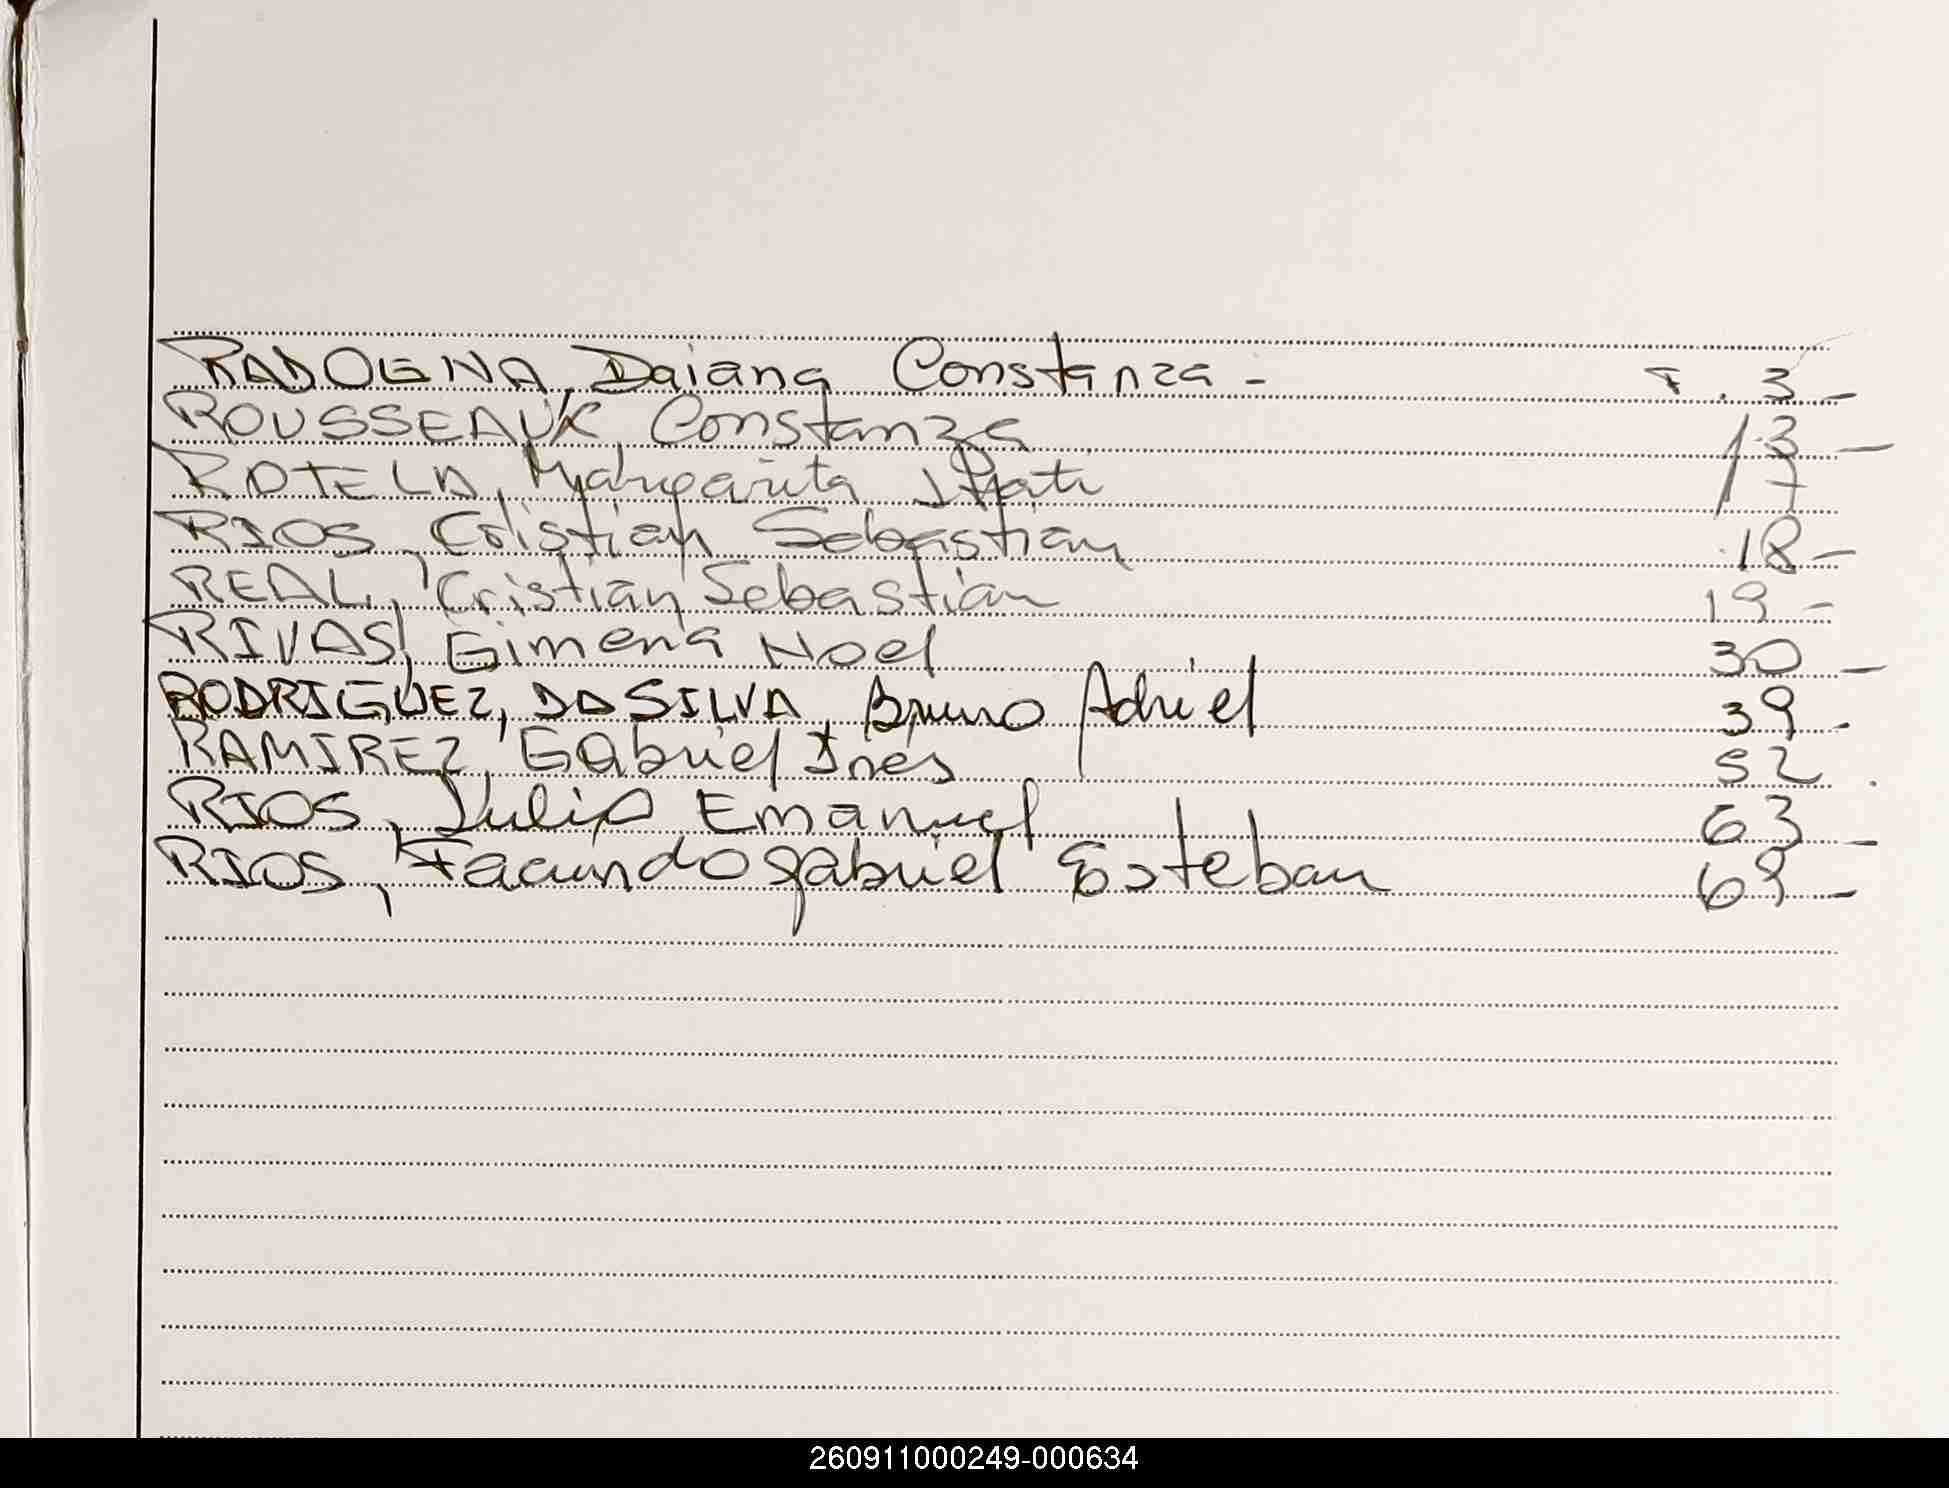 RADOGNA, Daiana Constanza - F. 3 -
ROUSSEAUX, Constanza 13 -
ROTELA, Margarita Itatí 17
RIOS, Cristian Sebastián 18 -
REAL, Cristian Sebastián 19 -
RIVAS, Gimena Noel 30 -
RODRIGUEZ, DA SILVA, Bruno Adriel 39 -
RAMIREZ, Gabriel Ines 52 .
RIOS, Julio Emanuel 63 -
RIOS, Facundo Gabriel Esteban 69 -
260911000249-000634